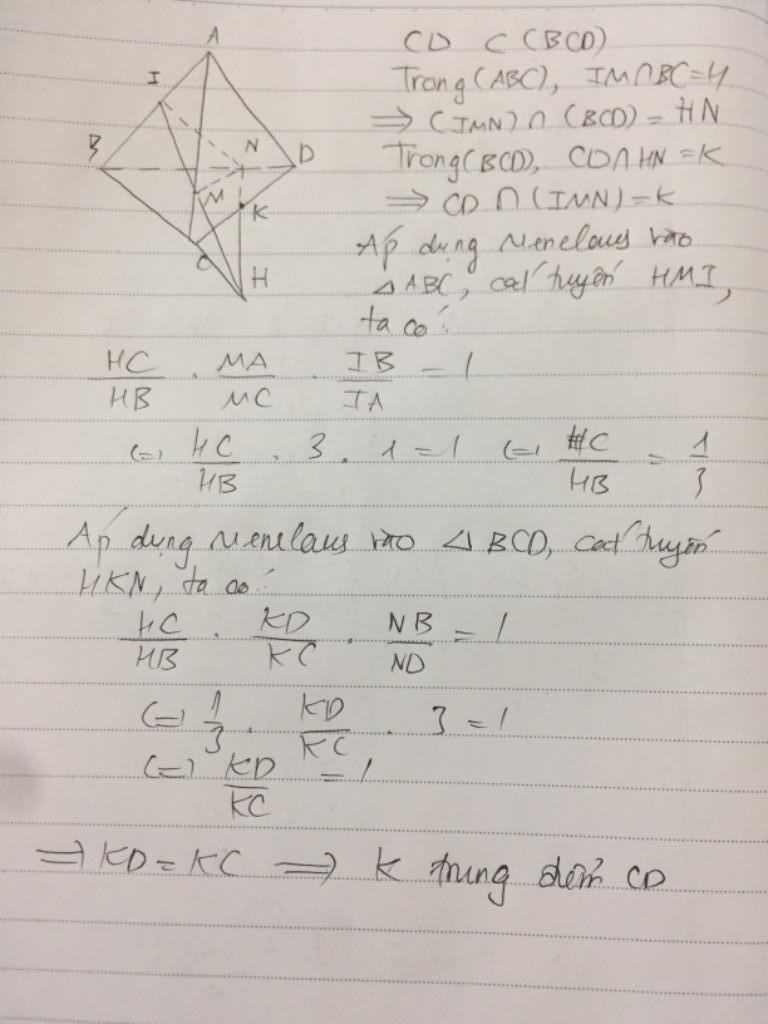 A
I
B
N
D
M
K
C
H
CD ⊂ (BCD)
Trong (ABC), IM∩BC=H
⇒ (IMN) ∩ (BCD) = HN
Trong (BCD), CD∩HN =K
⇒ CD ∩ (IMN) = K
Áp dụng Menelaus vào
△ABC, cát tuyến HMI,
ta có:
HC/HB . MA/MC . IB/IA = 1
(=) HC/HB . 3 . 1 = 1 (=) HC/HB = 1/3
Áp dụng Menelaus vào △ BCD, cát tuyến
HKN, ta có:
HC/HB . KD/KC . NB/ND = 1
(=) 1/3 . KD/KC . 3 = 1
(=) KD/KC = 1
⇒ KD = KC ⇒ K trung điểm CD